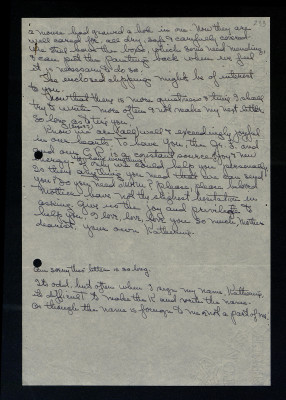 a mouse had gnawed a hole in one. Now they are
well cared for, all dry, safe & carefully covered
You still have the boys, which some need mending,
I can put the painting back when we feel
it is necessary to do so.
The enclosed clippings might be of interest
to you.
Now that there is more quietness & time, I shall
try to write more often & not make my next letter
so long as to tire you.
Know we are well & exceedingly joyful
in our hearts to have you, the
and our is a constant source of joy and
energy
Is there anything you need that we can send
you? Do you need others? Please, please, beloved
Mother, have not the slightest hesitation in
asking. Give us the joy and privilege to
help you. I love, love, love you so much, Mother
dearest your own Katharine.
Am sorry this letter is so long.
Its odd, but often when I sign my name, Katharine,
it's difficult to make the K and write the name.
As though the name is foreign to me & not a part of me.